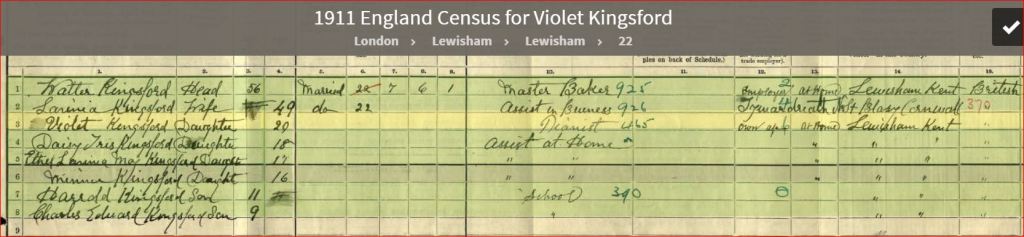 1911 England Census for Violet Kingsford
London > Lewisham > Lewisham > 22
ples on back of Schedule.) trade employer).
1. 2. 3. 4. 5. 6. 7. 8. 9. 10. 11. 12. 13. 14. 15.
1 Walter Kingsford Head 56 Married 22 7 6 1 Master Baker 925 Employer 2 at Home Lewisham Kent British
2 Lavinia Kingsford Wife 49 do 22 Assist in Business 926 4 St Blasy Cornwall 370
3 Violet Kingsford Daughter 20 Pianist 465 own 6 at Home Lewisham Kent "
4 Daisy Iris Kingsford Daughter 18 Assist at Home " " " "
5 Ethel Lavinia May Kingsford Daught 17 " " " " " "
6 Minnie Kingsford Daught 16 " " " " " "
7 Harrold Kingsford Son 11 School 390 0 " " "
8 Charles Edward Kingsford Son 9 " " " "
9